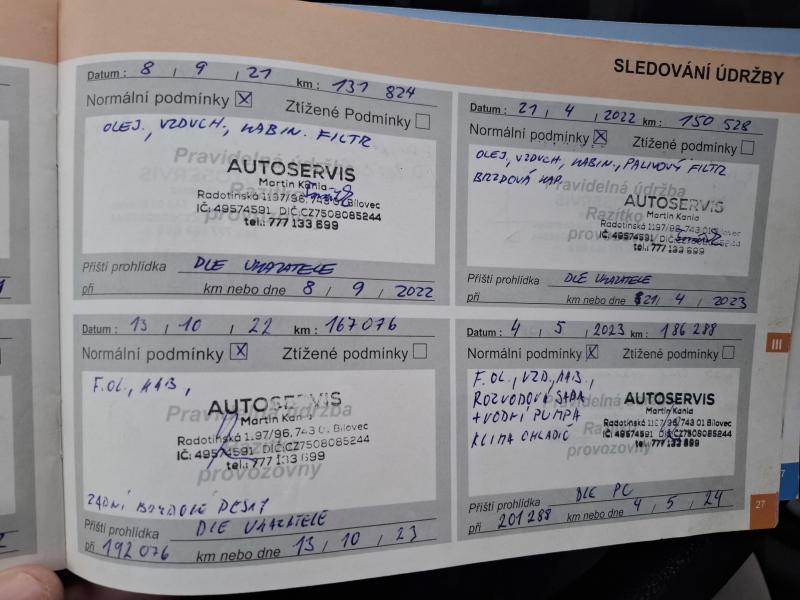 SLEDOVÁNÍ ÚDRŽBY
Datum : 8 / 9 / 21 km : 131 824
Normální podmínky X Ztížené Podmínky
OLEJ, VZDUCH, KABIN. FILTR
Pravidelná údržba
Razítko
provozovny
AUTOSERVIS
Martin Kania
Radotínská 1197/96, 743 01 Bílovec
IČ: 49574591 DIČ:CZ7508085244
tel.: 777 133 699
Příští prohlídka DLE UKAZATELE
při km nebo dne 8 / 9 / 2022
Datum : 21 / 4 / 2022 km : 150 528
Normální podmínky X Ztížené podmínky
OLEJ, VZDUCH, KABIN., PALIVOVÝ FILTR
BRZDOVÁ KAP.
Pravidelná údržba
Razítko
provozovny
AUTOSERVIS
Martin Kania
Radotínská 1197/96, 743 01 Bílovec
IČ: 49574591 DIČ:CZ7508085244
tel.: 777 133 699
Příští prohlídka DLE UKAZATELE
při km nebo dne 21 / 4 / 2023
Datum : 13 / 10 / 22 km : 167 076
Normální podmínky X Ztížené podmínky
F.OL., KAB,
Pravidelná údržba
Razítko
provozovny
AUTOSERVIS
Martin Kania
Radotínská 1197/96, 743 01 Bílovec
IČ: 49574591 DIČ:CZ7508085244
tel.: 777 133 699
ZADNÍ BRZDOVÉ DESKY
Příští prohlídka DLE UKAZATELE
při 192 076 km nebo dne 13 / 10 / 23
Datum : 4 / 5 / 2023 km : 186 288
Normální podmínky X Ztížené podmínky
F.OL., VZD., KAB.,
ROZVODOVÁ SADA
+ VODNÍ PUMPA
KLIMA CHLADIČ
Pravidelná údržba
Razítko
provozovny
AUTOSERVIS
Martin Kania
Radotínská 1197/96, 743 01 Bílovec
IČ: 49574591 DIČ:CZ7508085244
tel.: 777 133 699
Příští prohlídka DLE PC
při 201 288 km nebo dne 4 / 5 / 24
III
27